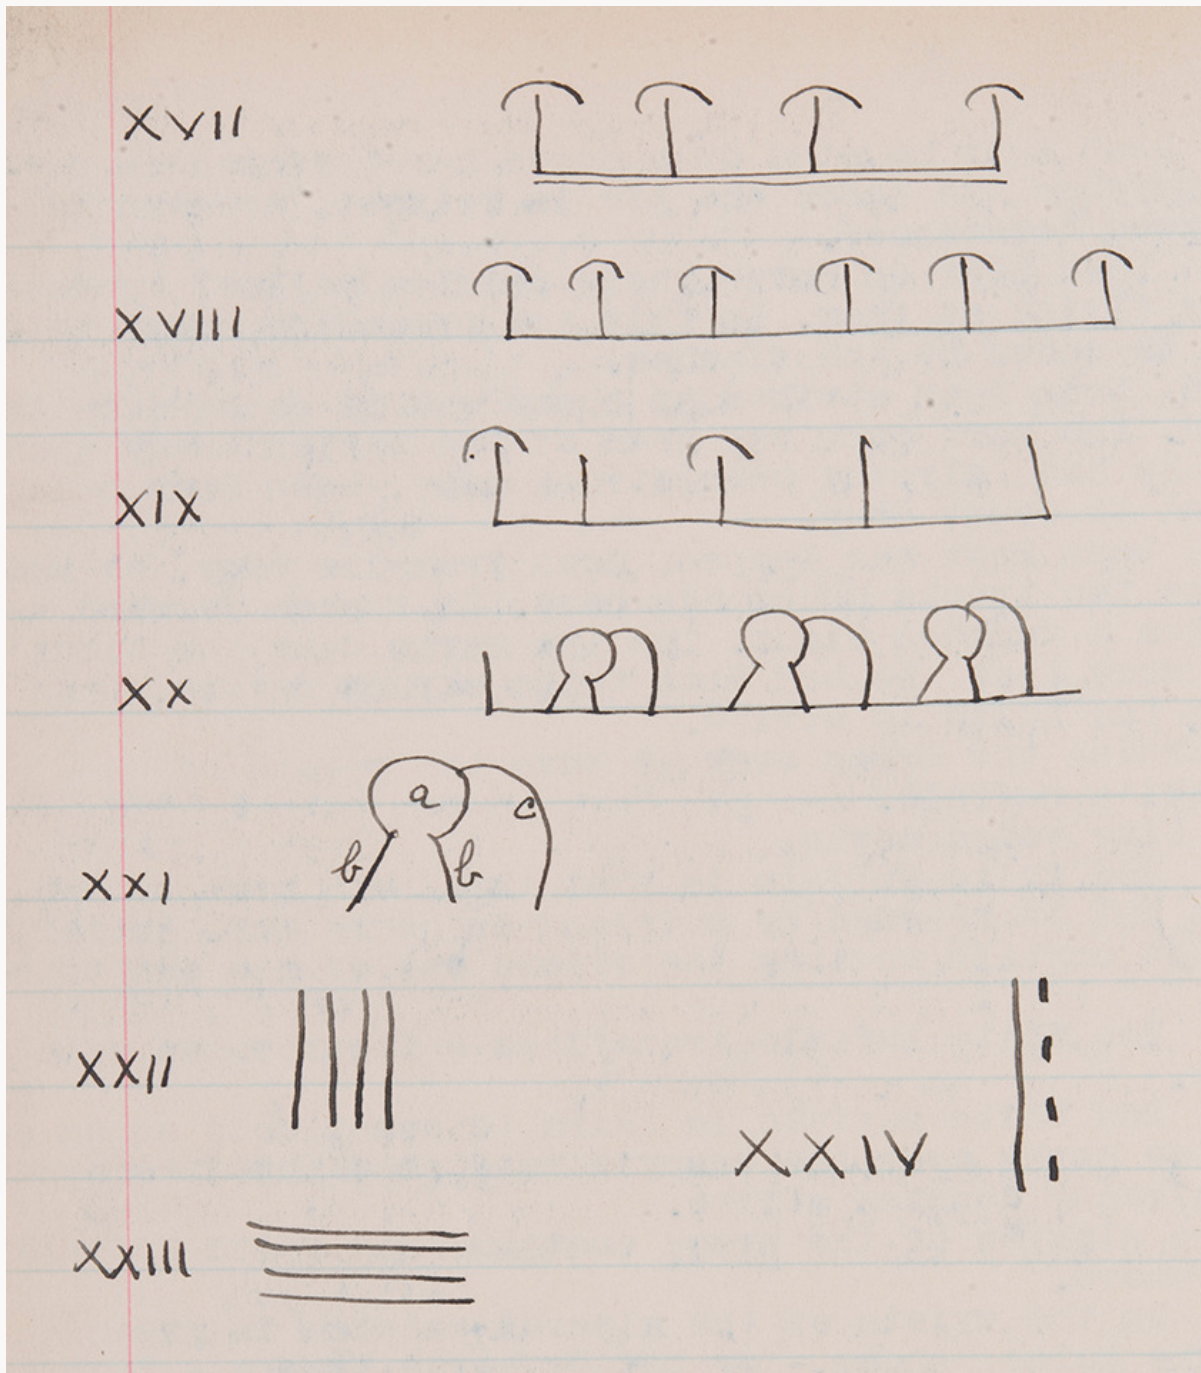 XVII
XVIII
XIX
XX
a
c
b b
XXI
XXII
XXIV
XXIII